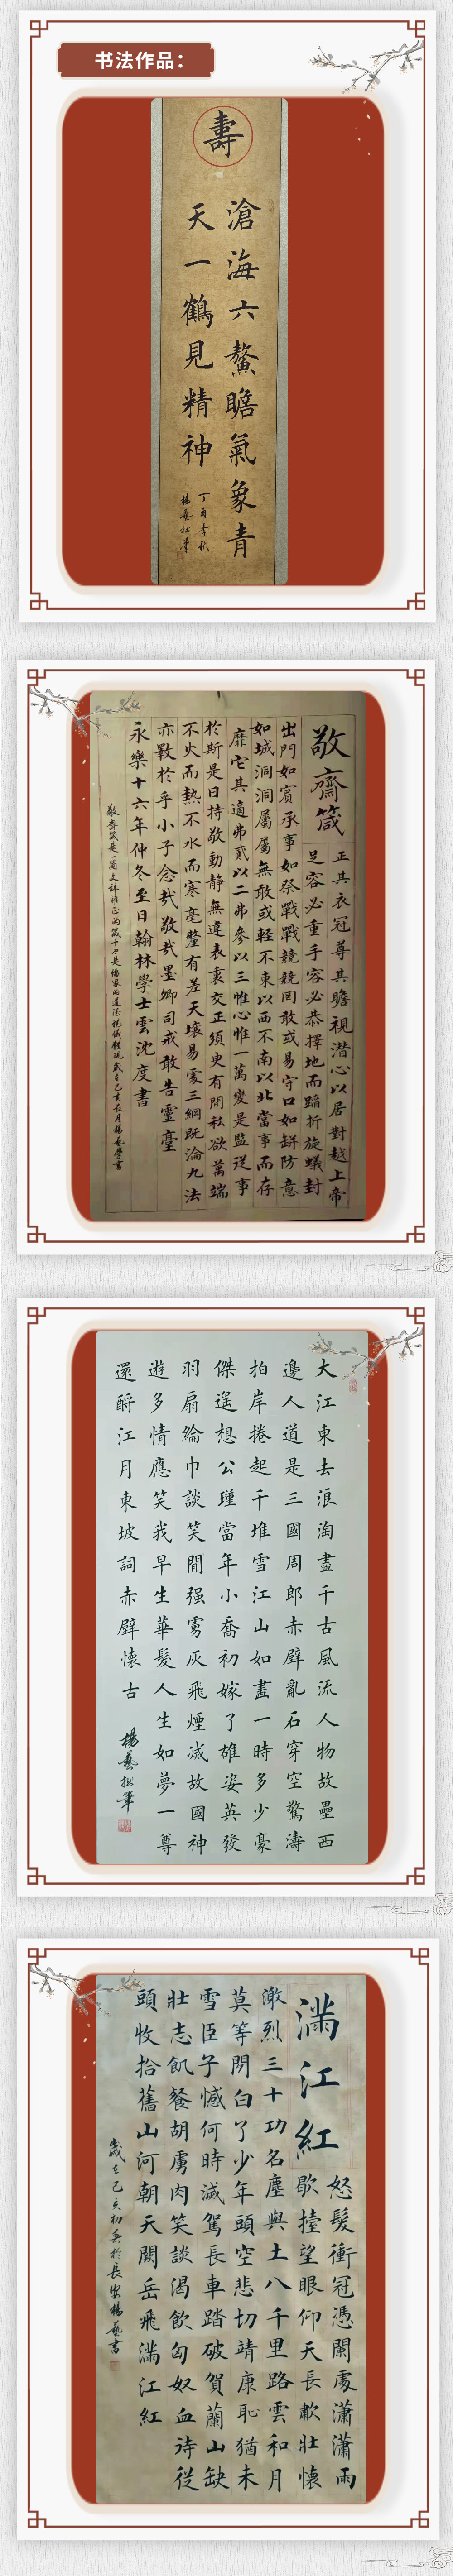 书法作品：
壽
滄海六鰲瞻氣象青
天一鶴見精神
丁酉季秋
楊藝拙筆
敬齋箴
正其衣冠尊其瞻視潜心以居對越上帝
足容必重手容必恭擇地而蹈折旋蟻封
出門如賓承事如祭戰戰兢兢罔敢或易守口如缾防意
如城洞洞屬屬無敢或輕不東以西不南以北當事而存
靡它其適弗貳以二弗參以三惟心惟一萬變是監從事
於斯是曰持敬動静無違表裏交正須臾有間私欲萬端
不火而熱不水而寒毫釐有差天壤易處三綱既淪九法
亦斁於乎小子念哉敬哉墨卿司戒敢告靈臺
永樂十六年仲冬至日翰林學士雲沈度書
大江東去浪淘盡千古風流人物故壘西
邊人道是三國周郎赤壁亂石穿空驚濤
拍岸捲起千堆雪江山如畫一時多少豪
傑遥想公瑾當年小喬初嫁了雄姿英發
羽扇綸巾談笑間强虜灰飛煙滅故國神
遊多情應笑我早生華髮人生如夢一尊
還酹江月東坡詞赤壁懷古
楊藝拙筆
滿江紅
怒髮衝冠憑闌處瀟瀟雨
歇擡望眼仰天長歗壯懷
激烈三十功名塵與土八千里路雲和月
莫等閒白了少年頭空悲切靖康恥猶未
雪臣子憾何時滅駕長車踏破賀蘭山缺
壯志飢餐胡虜肉笑談渴飲匈奴血待從
頭收拾舊山河朝天闕岳飛滿江紅
歲在己亥初冬於長安楊藝書